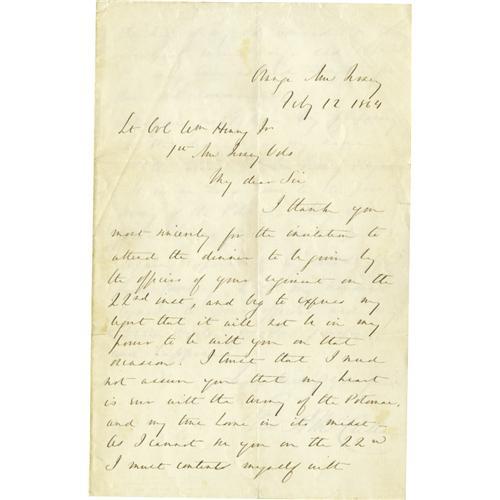 Orange New Jersey
Feby 12 1864
Lt Col Wm Henry Jr
1st New Jersey Vols
My dear Sir
I thank you
most sincerely for the invitation to
attend the dinner to be given by
the officers of your regiment on the
22nd inst, and beg to express my
regret that it will not be in my
power to be with you on that
occasion. I trust that I need
not assure you that my heart
is ever with the Army of the Potomac,
and my true home in its midst -
As I cannot see you on the 22nd
I must content myself with